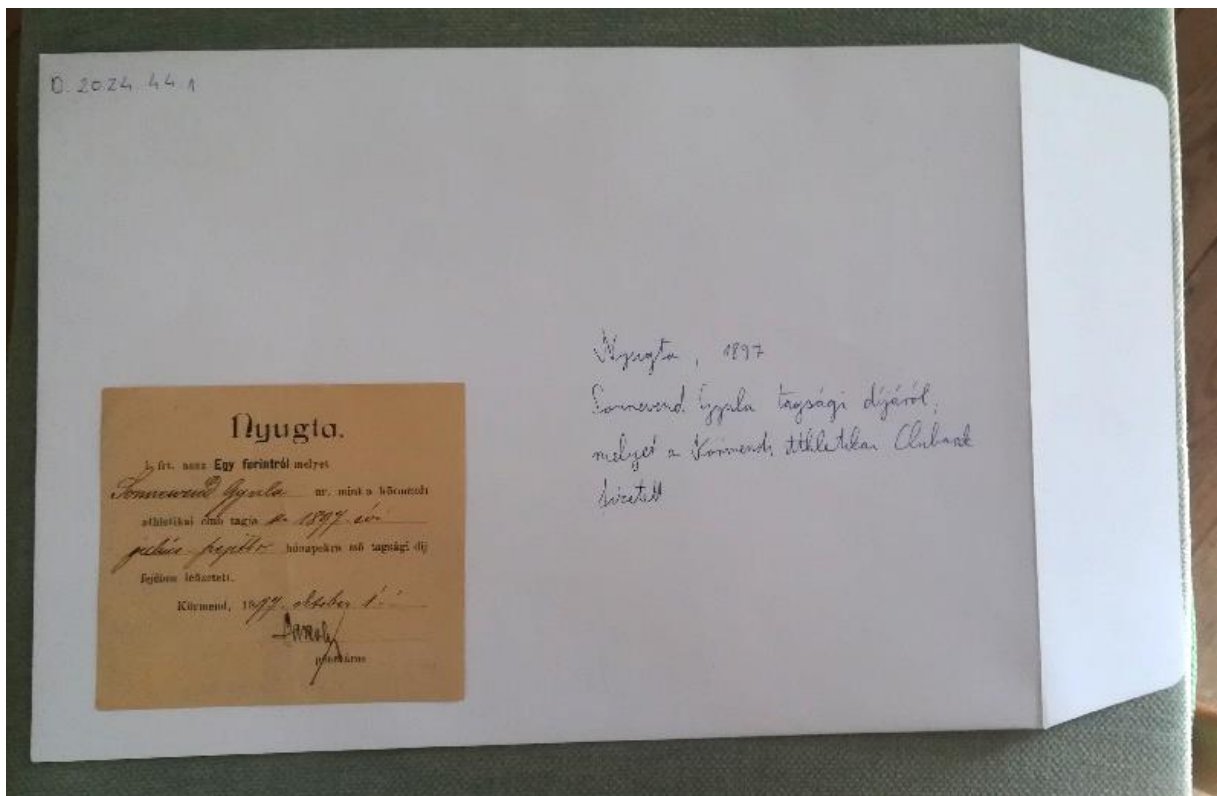 D. 2024. 44. 1
Nyugta.
1 frt. azaz Egy forintról melyet
Sonnewend Gyula ur. mint a körmendi
athletikai club tagja az 1897. évi
julius–szeptbr hónapokra eső tagsági díj
fejében lefizetett.
Körmend, 1897. oktober 1.
pénztáros
Nyugta, 1897
Sonnevend Gyula tagsági díjáról,
melyet a Körmendi Athletikai Clubnak
fizetett